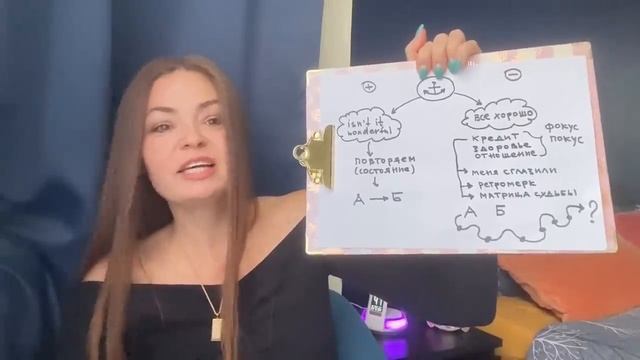 +
−
isn't it
wonderful
ВСЕ ХОРОШО
ПОВТОРЯЕМ
(СОСТОЯНИЕ)
А → Б
КРЕДИТ
ЗДОРОВЬЕ
ОТНОШЕНИЕ
ФОКУС
ПОКУС
→ МЕНЯ СГЛАЗИЛИ
→ РЕТРОМЕРК
→ МАТРИЦА СУДЬБЫ
А Б
?